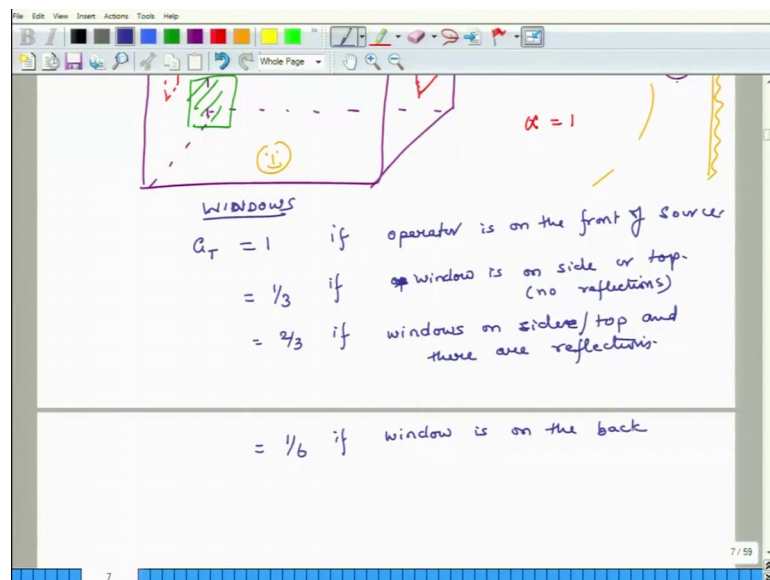 File Edit View Insert Actions Tools Help
B I
Whole Page
α = 1
WINDOWS
a_T = 1 if operator is on the front of source
= 1/3 if window is on side or top.
(no reflections)
= 2/3 if windows on side/top and
there are reflections.
= 1/6 if window is on the back
7 / 59
7